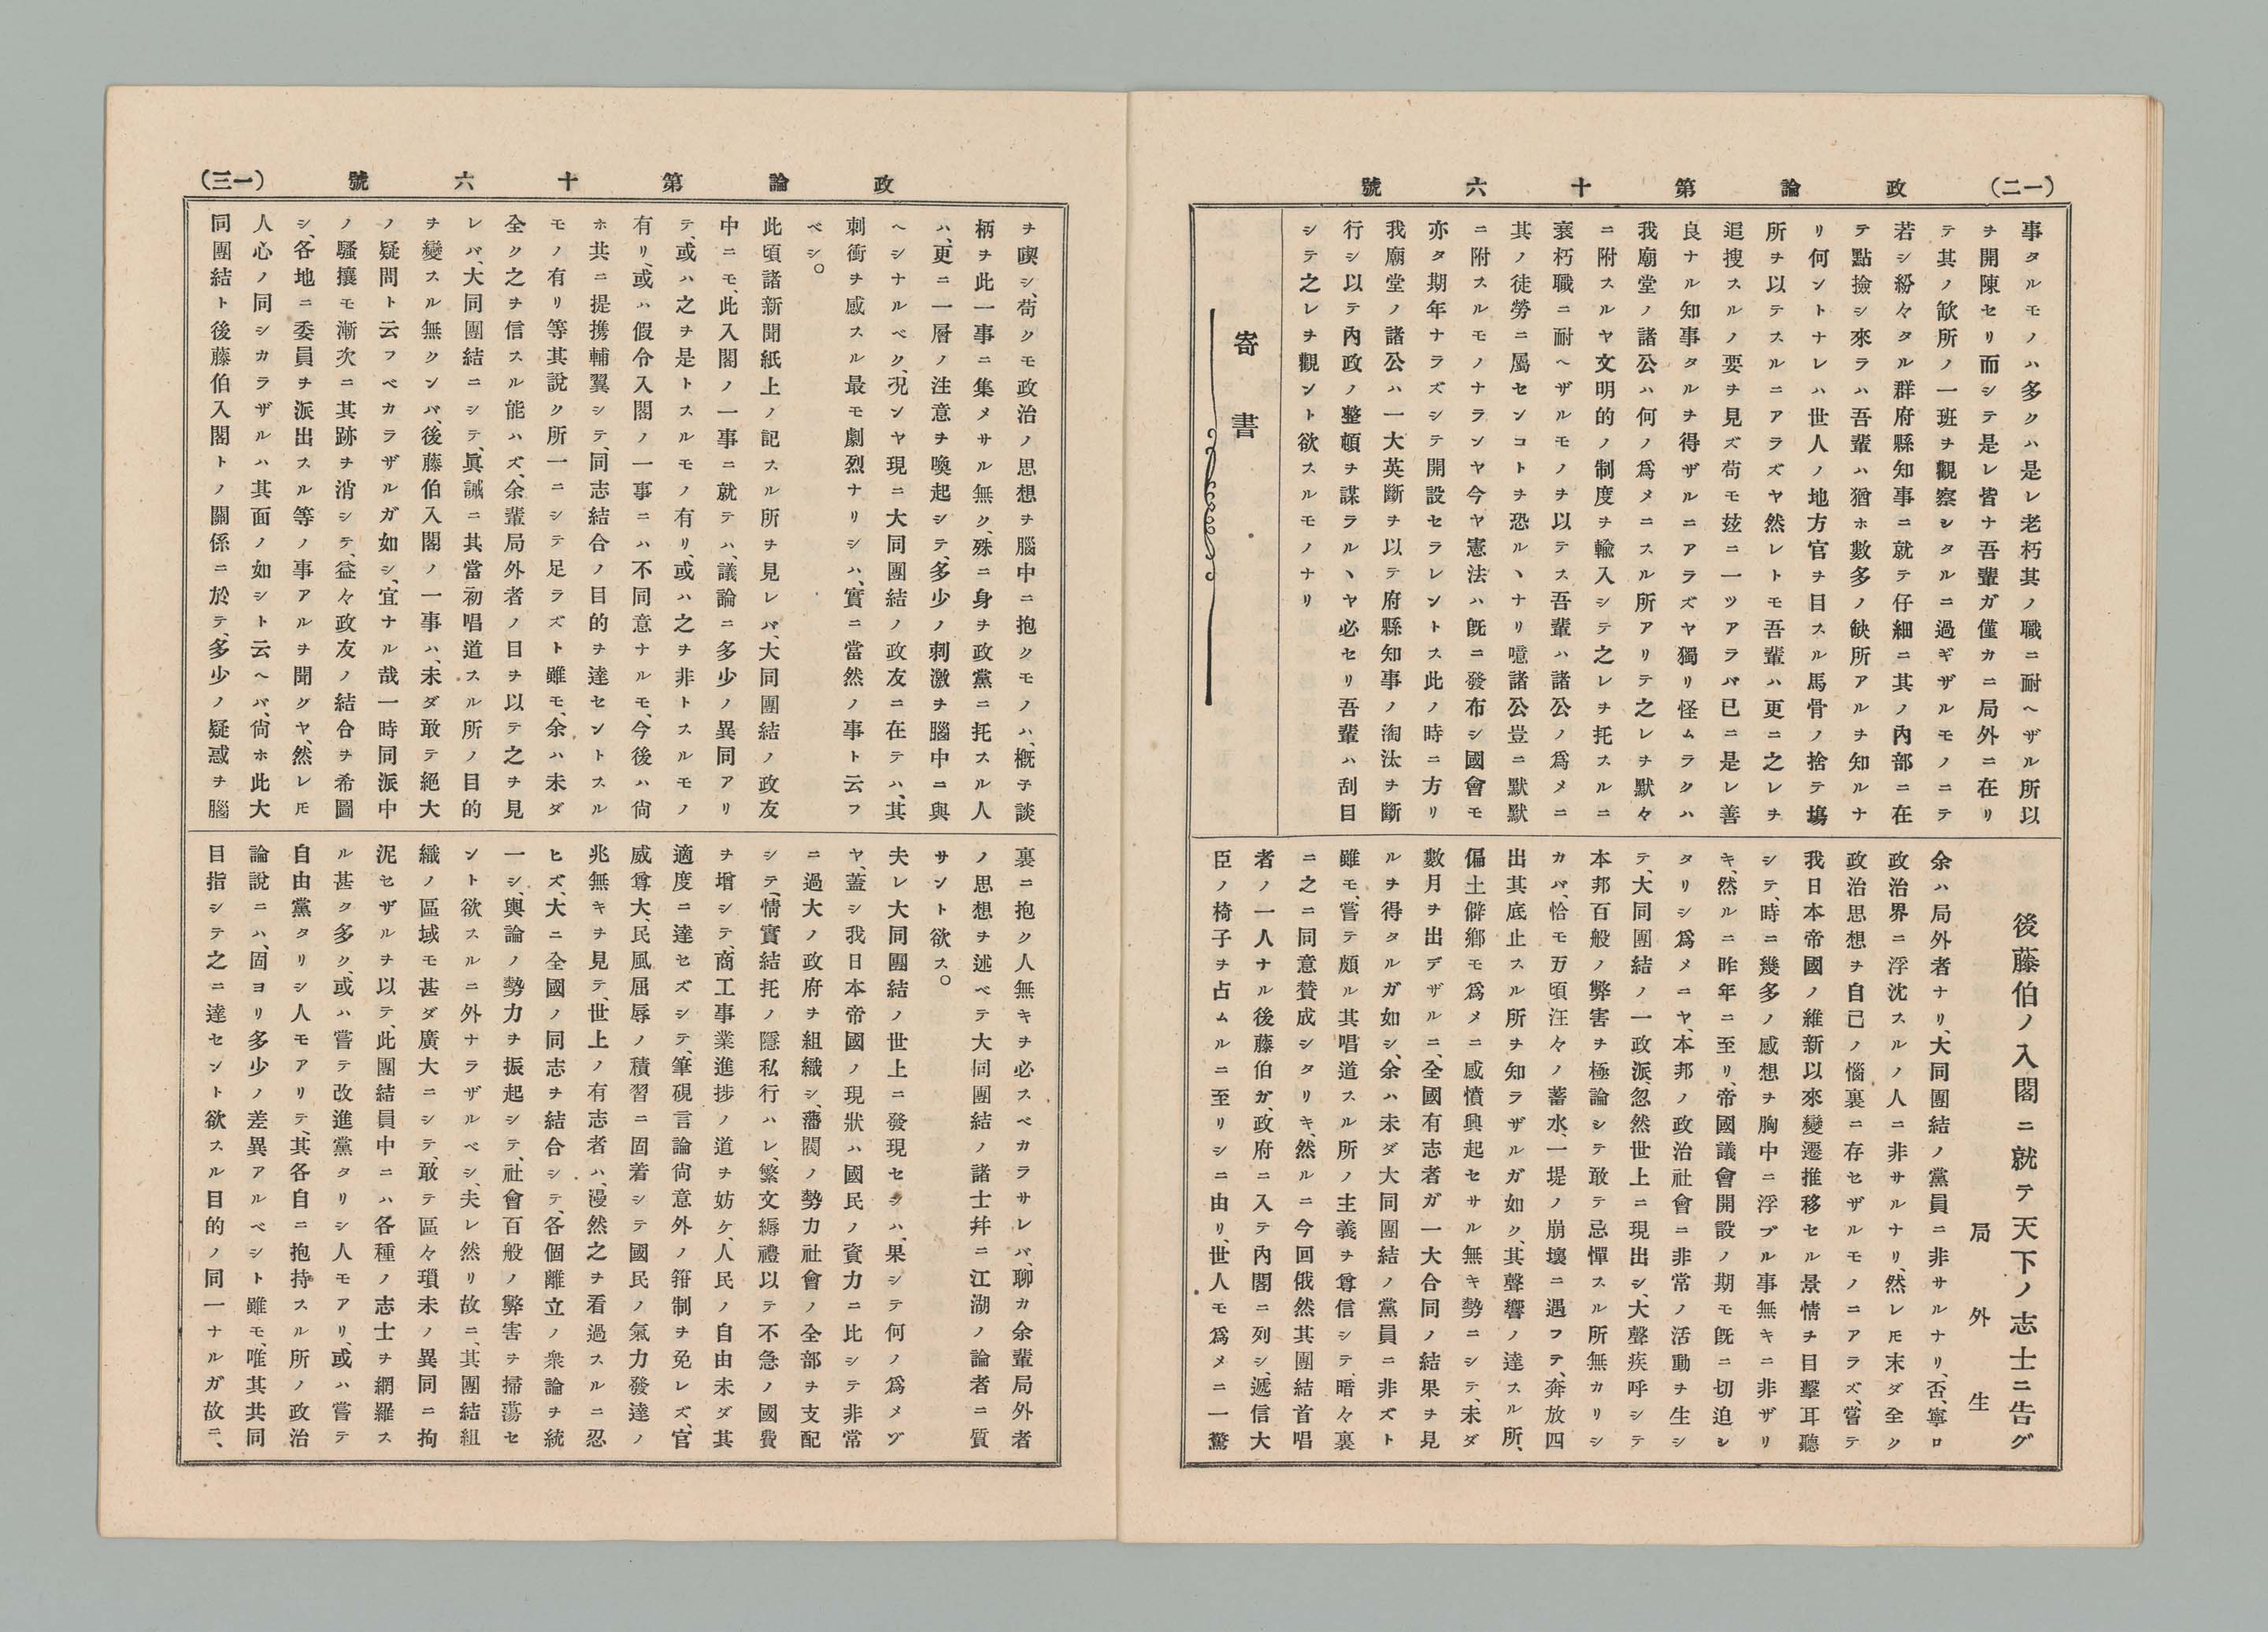 (一二) 政論第十六號
事タルモノハ多クハ是レ老朽其ノ職ニ耐ヘザル所以
ヲ開陳セリ而シテ是レ皆ナ吾輩ガ僅カニ局外ニ在リ
テ其ノ歓所ノ一班ヲ觀察シタルニ過ギザルモノニテ
若シ紛々タル群府縣知事ニ就テ仔細ニ其ノ內部ニ在
テ點撿シ來ラハ吾輩ハ猶ホ數多ノ缺所アルヲ知ルナ
リ何ントナレハ世人ノ地方官ヲ目スル馬骨ノ捨テ塲
所ヲ以テスルニアラズヤ然レトモ吾輩ハ更ニ之レヲ
追搜スルノ要ヲ見ズ苟モ玆ニ一ツアラバ已ニ是レ善
良ナル知事タルヲ得ザルニアラズヤ獨リ怪ムラクハ
我廟堂ノ諸公ハ何ノ爲メニスル所アリテ之レヲ默々
ニ附スルヤ文明的ノ制度ヲ輸入シテ之レヲ托スルニ
衰朽職ニ耐ヘザルモノヲ以テス吾輩ハ諸公ノ爲メニ
其ノ徒勞ニ屬センコトヲ恐ルヽナリ噫諸公豈ニ默默
ニ附スルモノナランヤ今ヤ憲法ハ既ニ發布シ國會モ
亦タ期年ナラズシテ開設セラレントス此ノ時ニ方リ
我廟堂ノ諸公ハ一大英斷ヲ以テ府縣知事ノ淘汰ヲ斷
行シ以テ內政ノ整頓ヲ謀ラルヽヤ必セリ吾輩ハ刮目
シテ之レヲ觀ント欲スルモノナリ
寄書
後藤伯ノ入閣ニ就テ天下ノ志士ニ告グ
局外生
余ハ局外者ナリ、大同團結ノ黨員ニ非サルナリ、否、寧ロ
政治界ニ浮沈スルノ人ニ非サルナリ、然レ𪜈末ダ全ク
政治思想ヲ自己ノ惱裏ニ存セザルモノニアラズ、嘗テ
我日本帝國ノ維新以來變遷推移セル景情ヲ目擊耳聽
シテ、時ニ幾多ノ感想ヲ胸中ニ浮ブル事無キニ非ザリ
キ、然ルニ昨年ニ至リ、帝國議會開設ノ期モ既ニ切迫シ
タリシ爲メニヤ、本邦ノ政治社會ニ非常ノ活動ヲ生シ
テ、大同團結ノ一政派、忽然世上ニ現出シ、大聲疾呼シテ
本邦百般ノ弊害ヲ極論シテ敢テ忌憚スル所無カリシ
カバ恰モ万頃汪々ノ蓄水、一堤ノ崩壞ニ遇フテ、奔放四
出其底止スル所ヲ知ラザルガ如ク、其聲響ノ達スル所、
偏土僻鄕モ爲メニ感憤興起セサル無キ勢ニシテ、未ダ
數月ヲ出デザルニ、全國有志者ガ一大合同ノ結果ヲ見
ルヲ得タルガ如シ、余ハ未ダ大同團結ノ黨員ニ非ズト
雖モ、嘗テ頗ル其唱道スル所ノ主義ヲ尊信シテ、暗々裏
ニ之ニ同意賛成シタリキ、然ルニ今回俄然其團結首唱
者ノ一人ナル後藤伯ガ、政府ニ入テ內閣ニ列シ、遞信大
臣ノ椅子ヲ占ムルニ至リシニ由リ、世人モ爲メニ一驚
(一三) 政論第十六號
ヲ喫シ、苟クモ政治ノ思想ヲ腦中ニ抱クモノハ、概子談
柄ヲ此一事ニ集メサル無ク、殊ニ身ヲ政黨ニ托スル人
ハ、更ニ一層ノ注意ヲ喚起シテ、多少ノ刺激ヲ腦中ニ與
ヘシナルベク、況ンヤ現ニ大同團結ノ政友ニ在テハ、其
刺衝ヲ感スル最モ劇烈ナリシハ、實ニ當然ノ事ト云フ
ベシ。
此頃諸新聞紙上ノ記スル所ヲ見レバ、大同團結ノ政友
中ニモ、此入閣ノ一事ニ就テハ、議論ニ多少ノ異同アリ
テ、或ハ之ヲ是トスルモノ有リ、或ハ之ヲ非トスルモノ
有リ、或ハ假令入閣ノ一事ニハ不同意ナルモ、今後ハ尙
ホ共ニ提携輔翼シテ、同志結合ノ目的ヲ達セントスル
モノ有リ等其說ク所一ニシテ足ラズト雖モ、余ハ未ダ
全ク之ヲ信スル能ハズ、余輩局外者ノ目ヲ以テ之ヲ見
レバ、大同團結ニシテ、眞誠ニ其當初唱道スル所ノ目的
ヲ變スル無クンバ、後藤伯入閣ノ一事ハ、未ダ敢テ絕大
ノ疑問ト云フベカラザルガ如シ、宜ナル哉一時同派中
ノ騷攘モ漸次ニ其跡ヲ消シテ、益々政友ノ結合ヲ希圖
シ、各地ニ委員ヲ派出スル等ノ事アルヲ聞グヤ、然レ𪜈
人心ノ同シカラザルハ其面ノ如シト云ヘバ、尙ホ此大
同團結ト後藤伯入閣トノ關係ニ於テ、多少ノ疑惑ヲ腦
裏ニ抱ク人無キヲ必スベカラサレバ、聊カ余輩局外者
ノ思想ヲ述ベテ大同團結ノ諸士幷ニ江湖ノ論者ニ質
サント欲ス。
夫レ大同團結ノ世上ニ發現セシハ、果シテ何ノ爲メゾ
ヤ、蓋シ我日本帝國ノ現狀ハ國民ノ資力ニ比シテ非常
ニ過大ノ政府ヲ組織シ、藩閥ノ勢力社會ノ全部ヲ支配
シテ、情實結托ノ隱私行ハレ、繁文縟禮以テ不急ノ國費
ヲ增シテ、商工事業進捗ノ道ヲ妨ケ、人民ノ自由未ダ其
適度ニ達セズシテ、筆硯言論尙意外ノ箝制ヲ免レズ、官
威尊大、民風屈辱ノ積習ニ固着シテ國民ノ氣力發達ノ
兆無キヲ見テ、世上ノ有志者ハ、漫然之ヲ看過スルニ忍
ヒズ、大ニ全國ノ同志ヲ結合シテ、各個離立ノ衆論ヲ統
一シ、輿論ノ勢力ヲ振起シテ、社會百般ノ弊害ヲ掃蕩セ
ント欲スルニ外ナラザルベシ、夫レ然リ故ニ、其團結組
織ノ區域モ甚ダ廣大ニシテ、敢テ區々瑣末ノ異同ニ拘
泥セザルヲ以テ、此團結員中ニハ各種ノ志士ヲ網羅ス
ル甚ク多ク、或ハ嘗テ改進黨タリシ人モアリ、或ハ嘗テ
自由黨タリシ人モアリテ、其各自ニ抱持スル所ノ政治
論說ニハ、固ヨリ多少ノ差異アルベシト雖モ、唯其共同
目指シテ之ニ達セント欲スル目的ノ同一ナルガ故ニ、